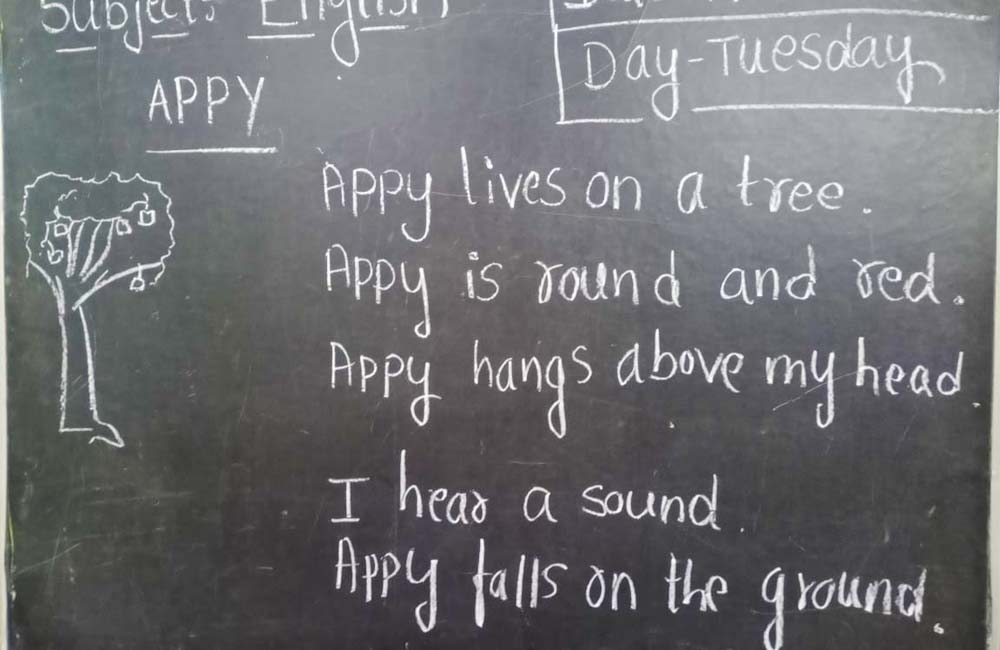 Subject: English
Day-Tuesday
APPY
Appy lives on a tree.
Appy is round and red.
Appy hangs above my head.
I hear a sound.
Appy falls on the ground.